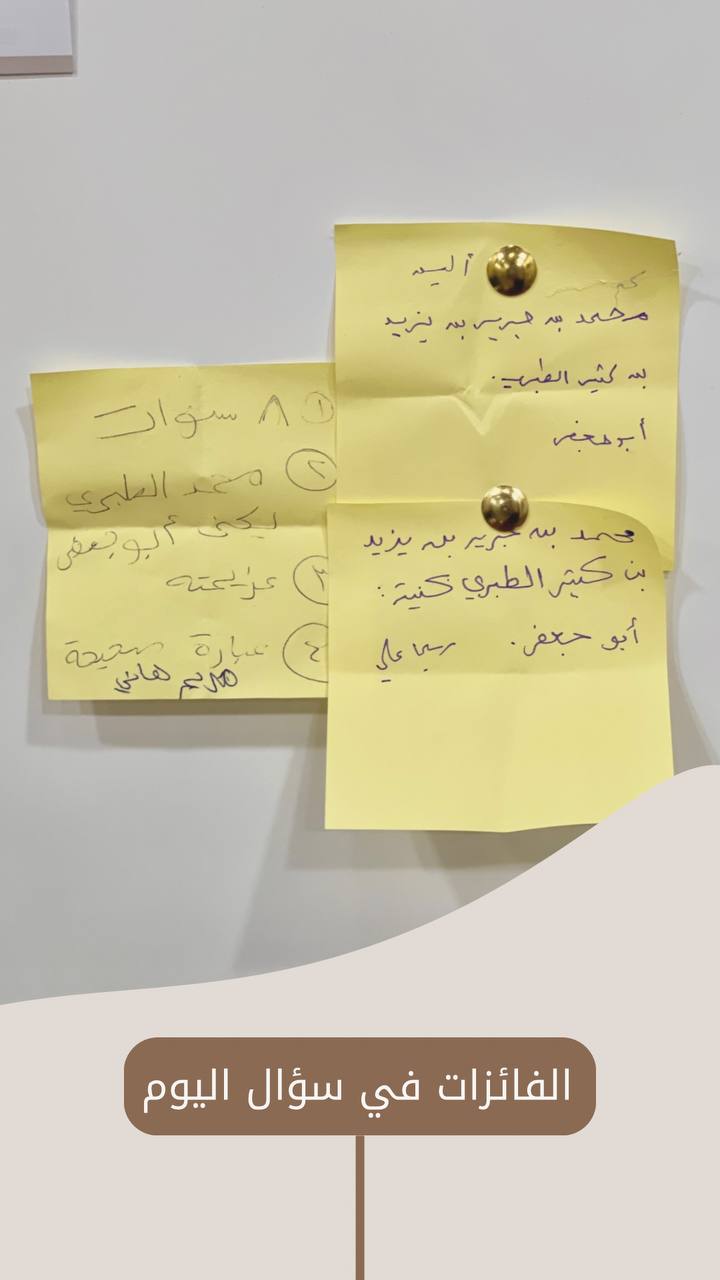 أليس
محمد بن جرير بن يزيد
بن كثير الطبري.
أبو جعفر
محمد بن جرير بن يزيد
بن كثير الطبري كنية:
أبو جعفر. ريما علي
① ٨ سنوات
② محمد الطبري
يكنى أبو جعفر
③
④ عبارة صحيحة
مريم هاني
الفائزات في سؤال اليوم